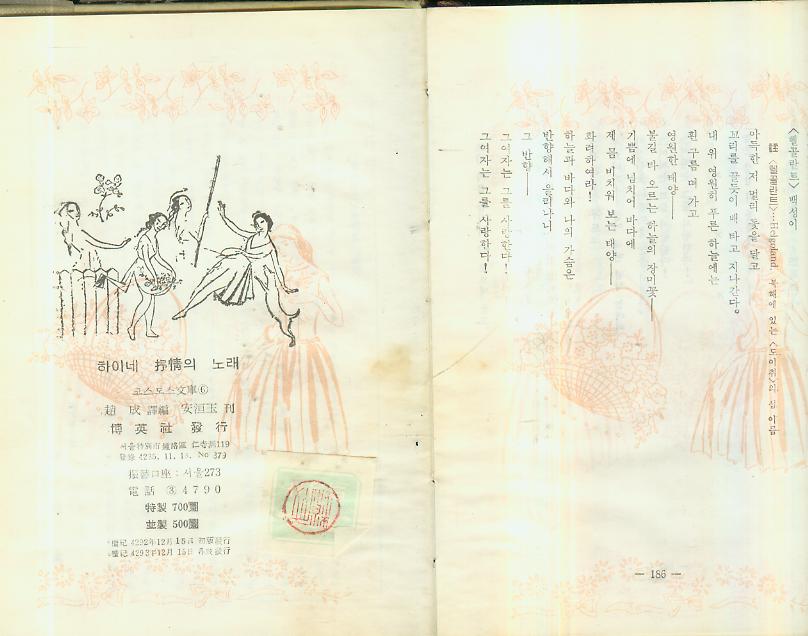 하이네 抒情의 노래
코스모스文庫⑥
趙 成 譯編 安洹玉 刊
博英社 發行
서울特別市 鍾路區 仁寺洞119
登錄 4285. 11. 18. No 379
振替口座 : 서울273
電話 ③ 4790
特製 700圜
並製 500圜
檀记 4292年12月 15日 初版發行
檀记 4293年12月 15日 再版發行
〈헬골란트〉 백성이
註 〈헬골란트〉…Helgoland 북해에 있는 〈도이취〉의 섬 이름
아득한 저 멀리 돛을 달고
꼬리를 끌듯이 배 타고 지나간다.
내 위 영원히 푸른 하늘에는
흰 구름 떠 가고
영원한 태양──
불길 타 오르는 하늘의 장미꽃──
기쁨에 넘치어 바다에
제 몸 비치워 보는 태양──
화려하여라!
하늘과 바다와 나의 가슴은
반향해서 울리나니
그 반향──
그여자는 그를 사랑한다!
그여자는 그를 사랑한다!
— 186 —